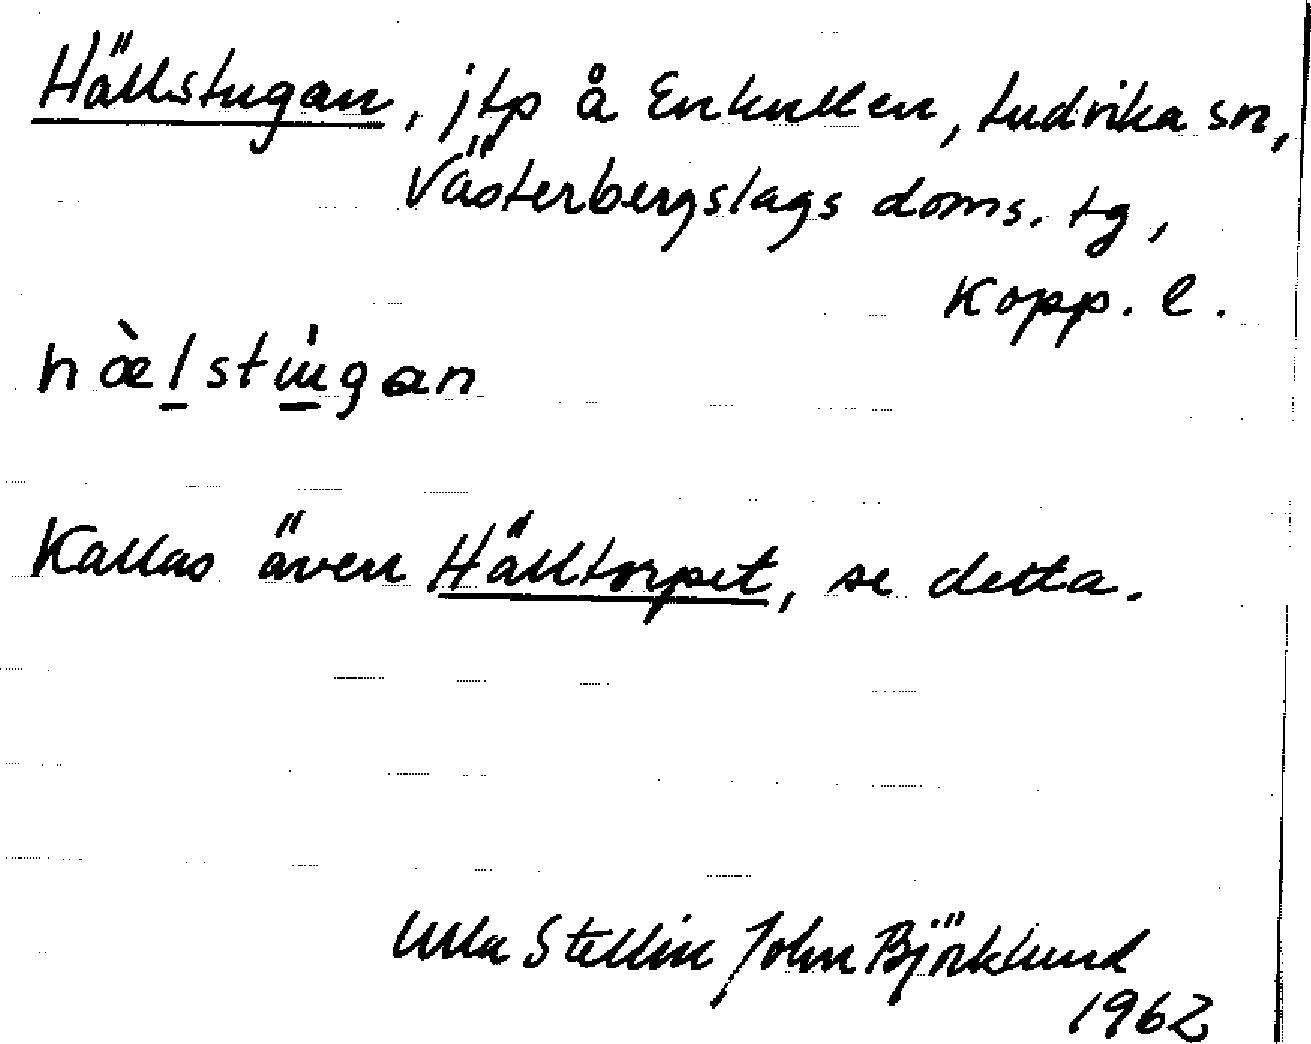 Hällstugan, jtp å Enkullen, Ludvika sn,
Västerbergslags doms. tg,
Kopp. l.
hæ̀l̲stùgan
Kallas även Hälltorpet, se detta.
Ulla Stellin John Björklund
1962